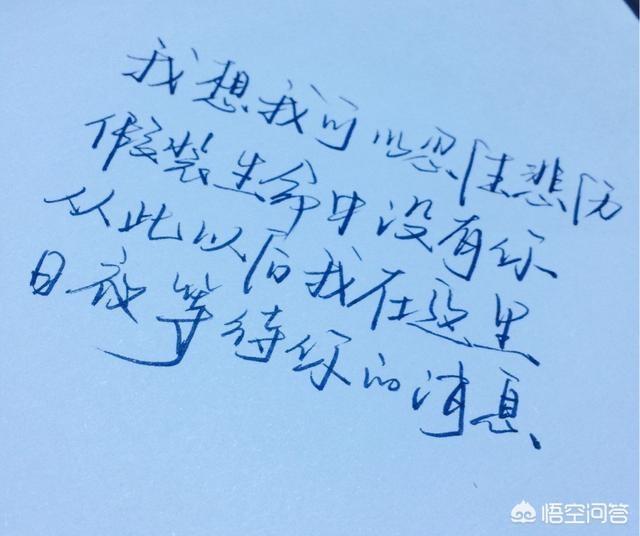 我想我可以忍住悲伤
假装生命中没有你
从此以后我在这里
日夜等待你的消息
悟空问答